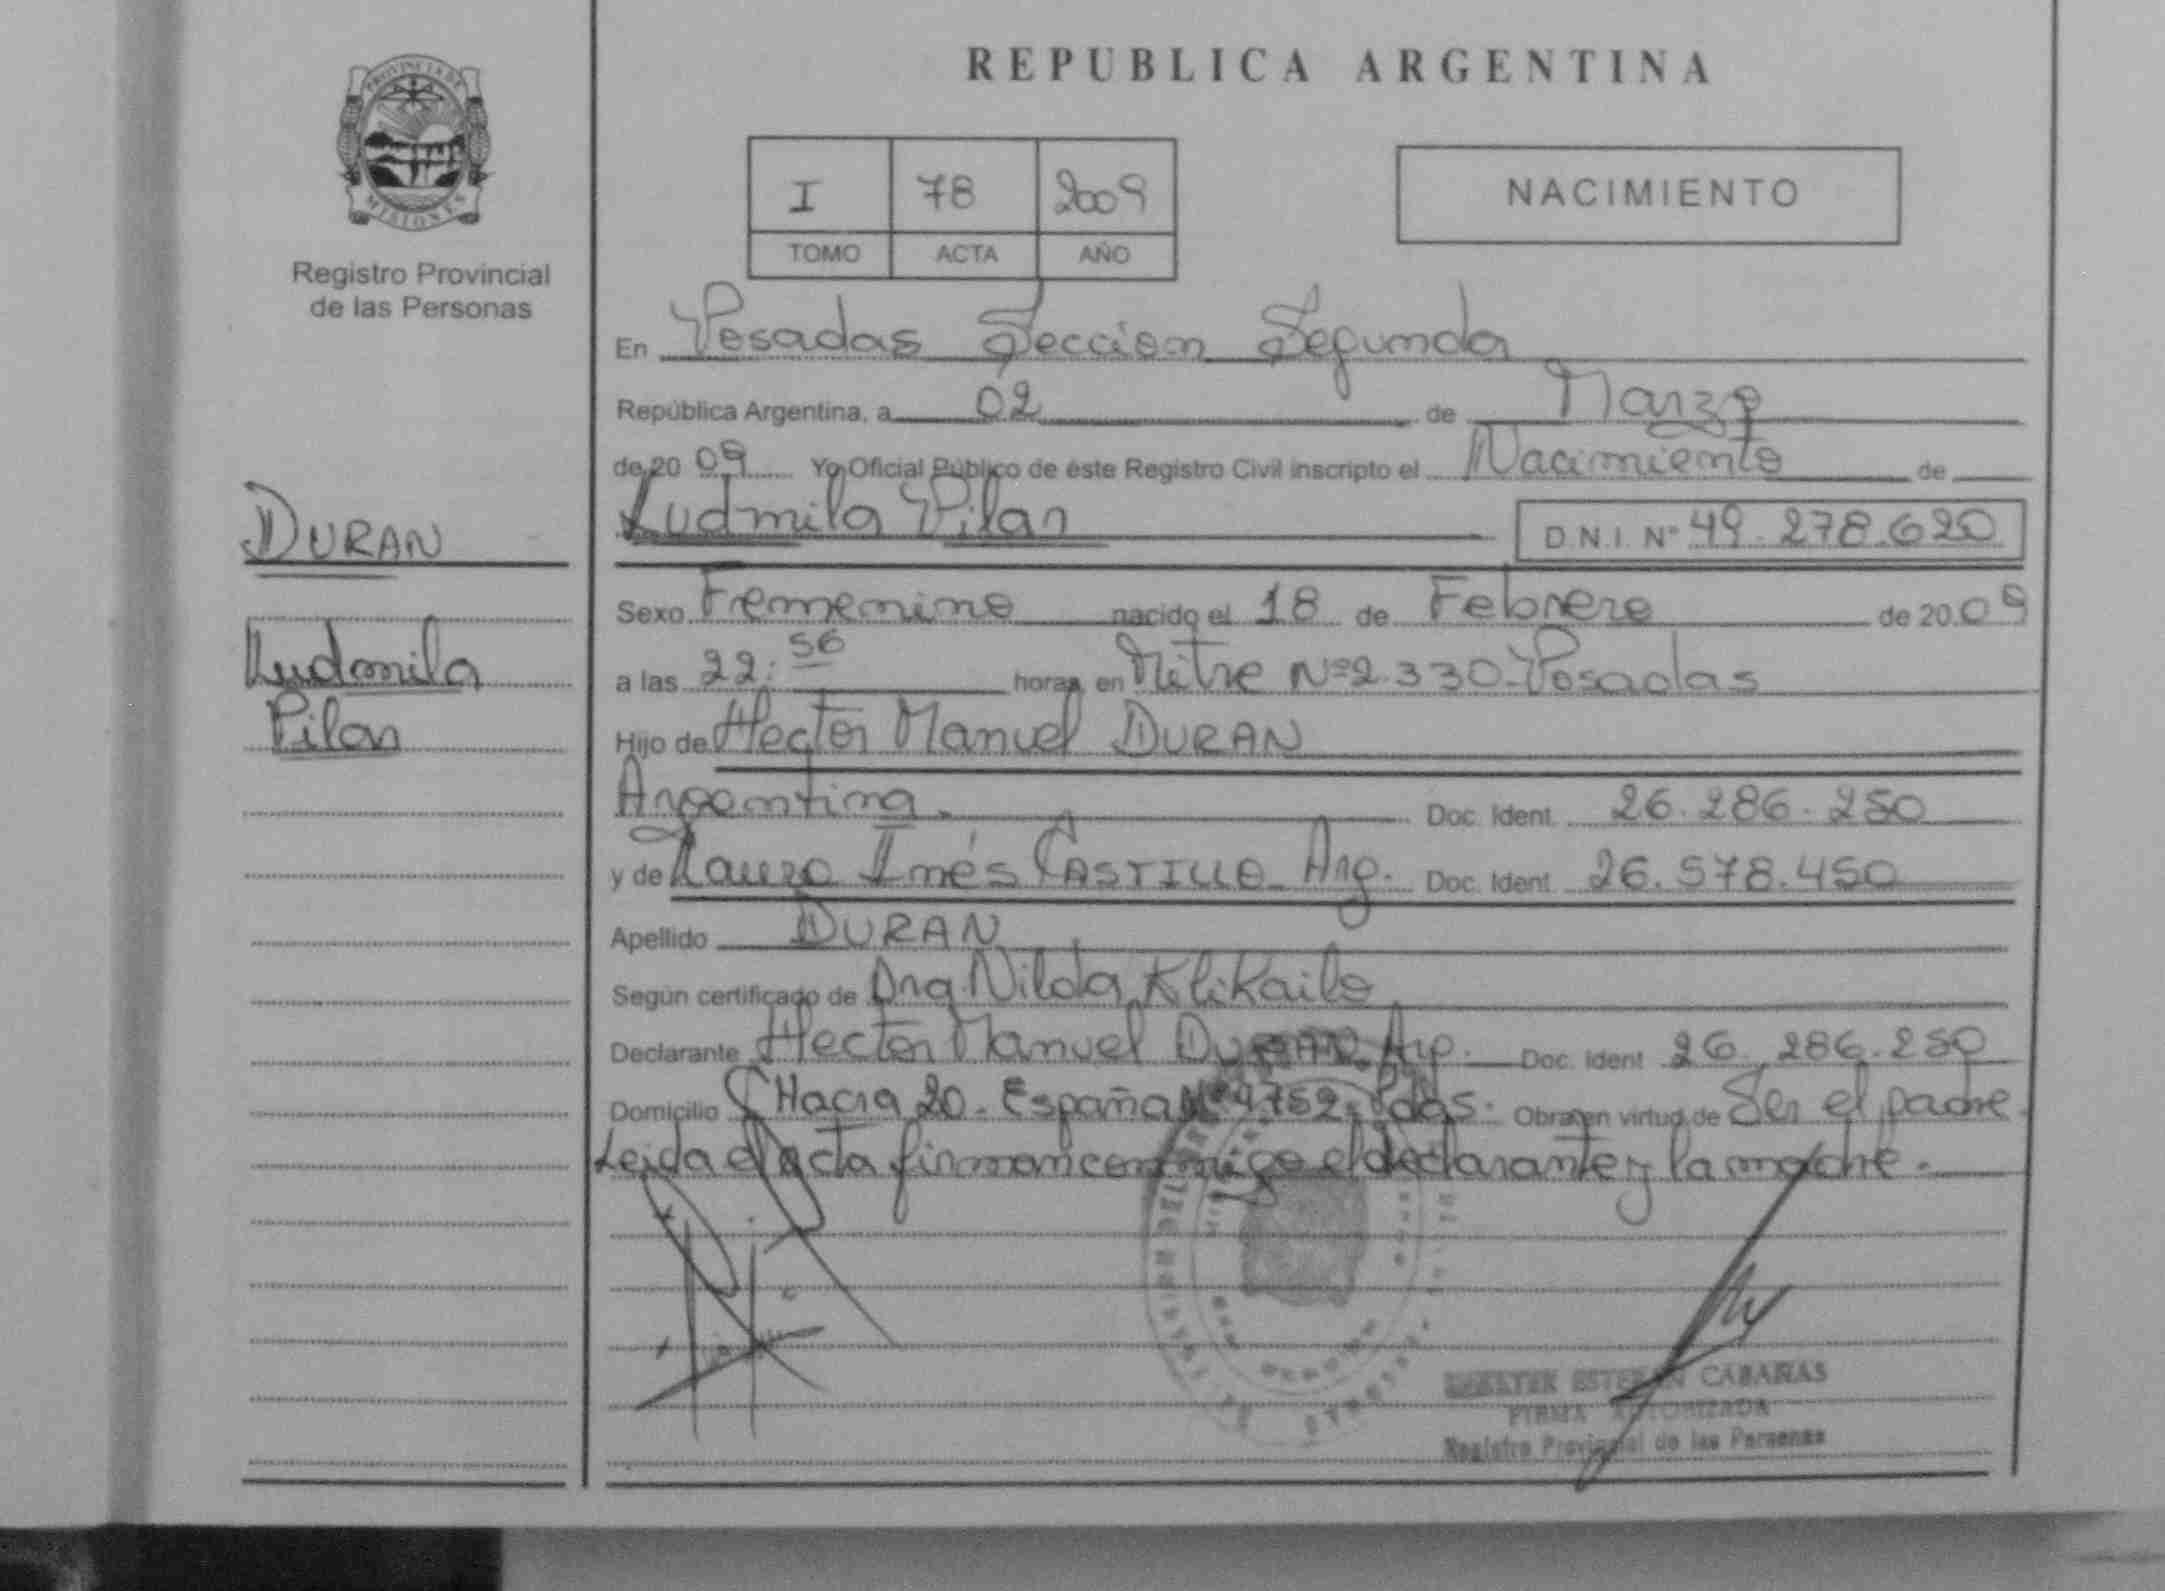 PROVINCIA DE
MISIONES
Registro Provincial
de las Personas
DURAN
Ludmila
Pilar
REPUBLICA ARGENTINA
I 78 2009
TOMO ACTA AÑO
NACIMIENTO
En Posadas Seccion Segunda
República Argentina, a 02 de Marzo
de 20 09 Yo Oficial Público de éste Registro Civil inscripto el Nacimiento de
Ludmila Pilar D.N.I. Nº 49.278.620
Sexo Femenino nacido el 18 de Febrero de 20 09
a las 22:56 horas, en Mitre Nº 2.330-Posadas
Hijo de Hector Manuel DURAN
Argentina. Doc. Ident. 26.286.250
y de Laura Inés CASTILLO Arg. Doc. Ident. 26.578.450
Apellido DURAN
Según certificado de Nilda Klikailo
Declarante Hector Manuel DURAN Arg. Doc. Ident 26.286.250
Domicilio CHacra 20. España Nº 4752. Pdas. Obra en virtud de Ser el padre.
Leida el acta firman conmigo el declarante y la madre.
ESTEBAN CABAÑAS
FIRMA AUTORIZADA
Registro Provincial de las Personas